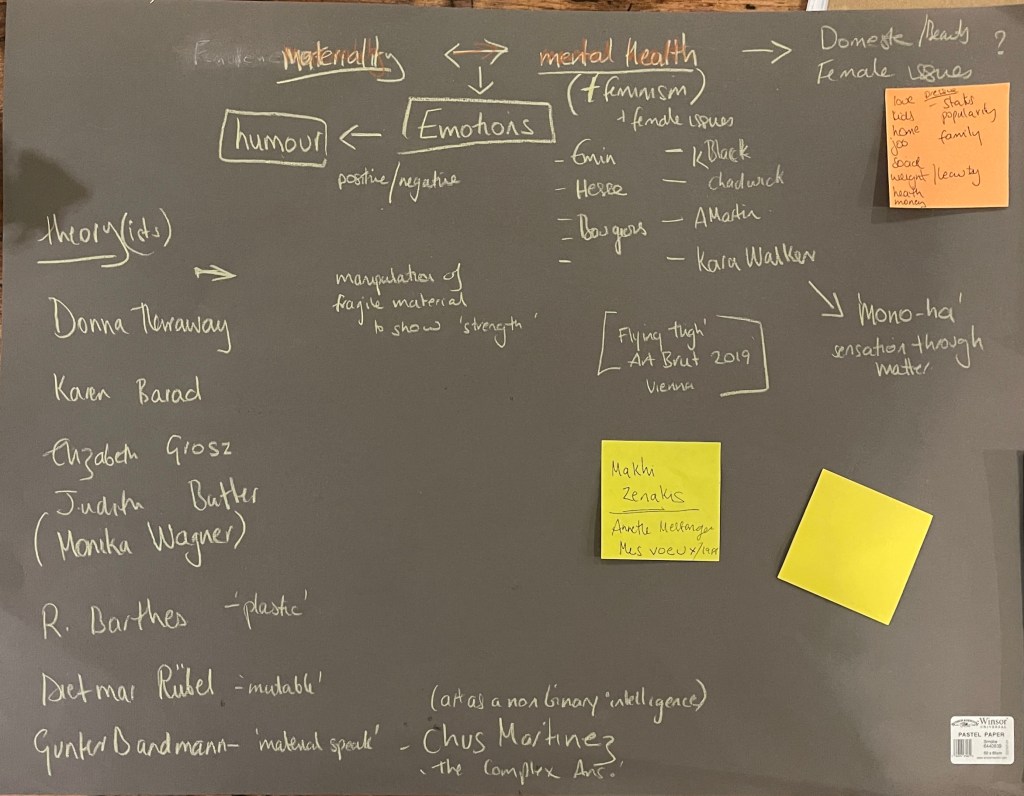 materiality ↔ mental health → Domestic/Beauty ?
Female issues
(+ feminism)
+ female issues
humour ← Emotions
positive/negative
- Emin
- Hesse
- Bourgois
- K Black
- Chadwick
- A Martin
- Kara Walker
love pressure
kids - status
home popularity
job family
social
weight/beauty
health
money
theory(ists)
→
manipulation of
fragile material
to show 'strength'
'Mono-ha'
sensation through
matter
[Flying high'
Art Brut 2019
Vienna]
Donna Herraway
Karen Barad
Elizabeth Grosz
Judith Butler
(Monika Wagner)
R. Barthes - 'plastic'
Dietmar Rübel - 'mutable'
Gunter Bandmann - 'material speak' - Chus Martinez
(art as a non binary intelligence)
The Complex Ans.'
Makhi
Zenakis
Annette Messanger
Mes voeux/
Winsor
UNIVERSAL
PASTEL PAPER